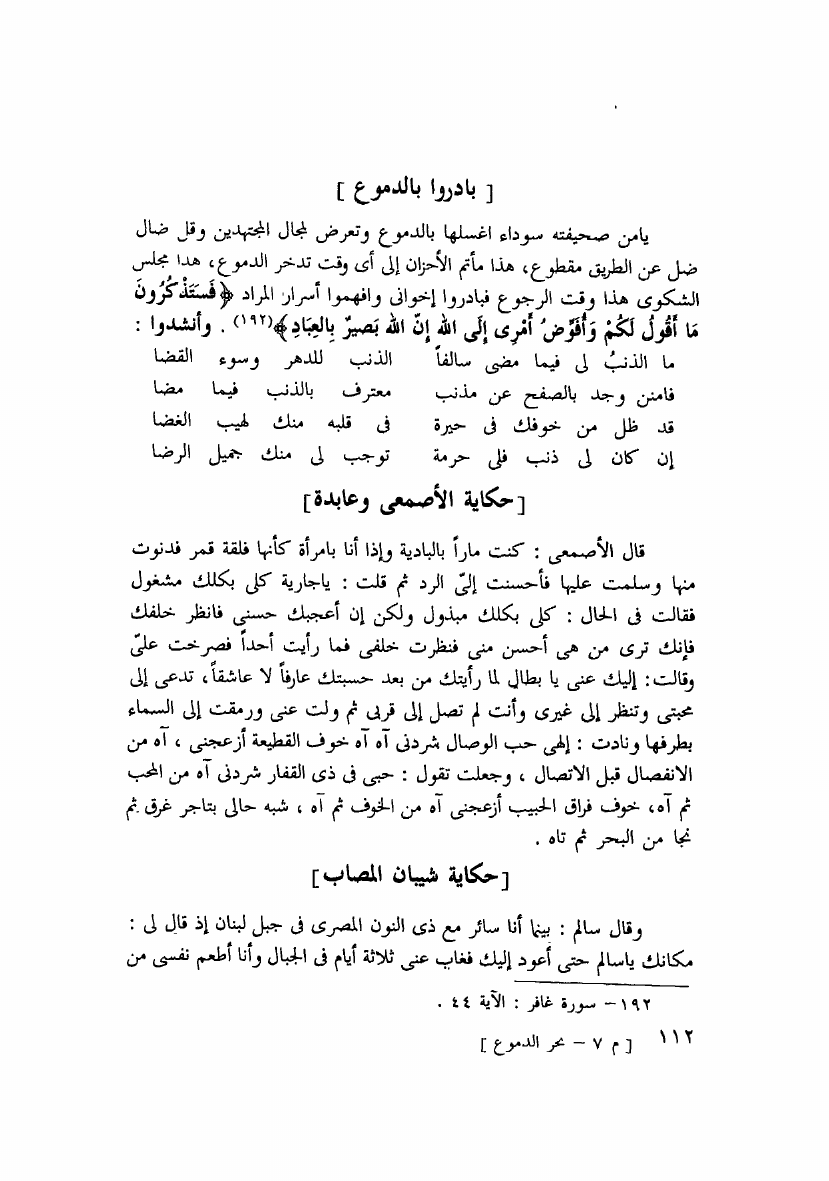 [ بادروا بالدموع ]
يامن صحيفته سوداء اغسلها بالدموع وتعرض لمجال المجتهدين وقل ضال
ضل عن الطريق مقطوع، هذا مأتم الأحزان إلى أى وقت تدخر الدموع، هدا مجلس
الشكوى هذا وقت الرجوع فبادروا إخوانى وافهموا أسرار المراد ﴿فَسَتَذْكُرُونَ
مَا أَقُولُ لَكُمْ وَأُفَوِّضُ أَمْرِى إِلَى الله إِنّ الله بَصيرٌ بِالعِبَادِ﴾(١٩٢) . وأنشدوا :
ما الذنبُ لى فيما مضى سالفاً الذنب للدهر وسوء القضا
فامنن وجد بالصفح عن مذنب معترف بالذنب فيما مضا
قد ظل من خوفك فى حيرة فى قلبه منك لهيب الغضا
إن كان لى ذنب فلى حرمة توجب لى منك جميل الرضا
[حكاية الأصمعى وعابدة]
قال الأصمعى : كنت ماراً بالبادية وإذا أنا بامرأة كأنها فلقة قمر فدنوت
منها وسلمت عليها فأحسنت إلىّ الرد ثم قلت : ياجارية كلى بكلك مشغول
فقالت فى الحال : كلى بكلك مبذول ولكن إن أعجبك حسنى فانظر خلفك
فإنك ترى من هى أحسن منى فنظرت خلفى فما رأيت أحداً فصرخت علىّ
وقالت: إليك عنى يا بطال لما رأيتك من بعد حسبتك عارفاً لا عاشقاً، تدعى إلى
محبتى وتنظر إلى غيرى وأنت لم تصل إلى قربى ثم ولت عنى ورمقت إلى السماء
بطرفها ونادت : إلهى حب الوصال شردنى آه آه خوف القطيعة أزعجنى ، آه من
الانفصال قبل الاتصال ، وجعلت تقول : حبى فى ذى القفار شردنى آه من المحب
ثم آه، خوف فراق الحبيب أزعجنى آه من الخوف ثم آه ، شبه حالى بتاجر غرق ثم
نجا من البحر ثم تاه .
[حكاية شيبان المصاب]
وقال سالم : بينما أنا سائر مع ذى النون المصرى فى جبل لبنان إذ قال لى :
مكانك ياسالم حتى أعود إليك فغاب عنى ثلاثة أيام فى الجبال وأنا أطعم نفسى من
١٩٢– سورة غافر : الآية ٤٤ .
١١٢ [ م ٧ – بحر الدموع ]